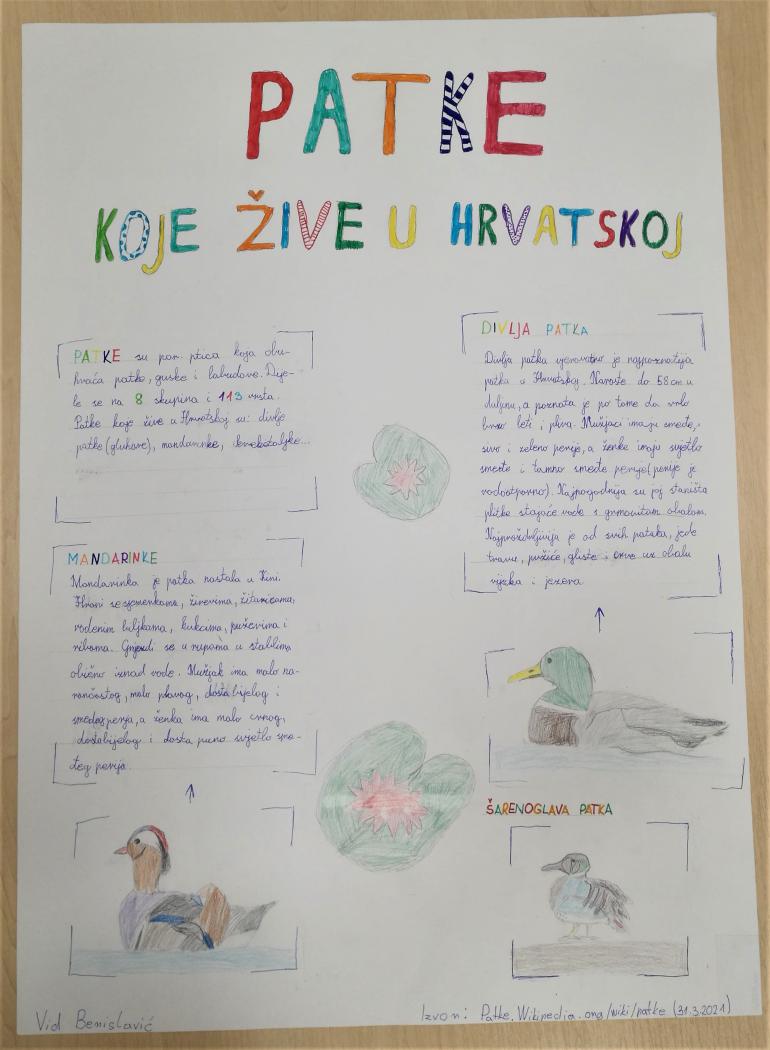 PATKE
KOJE ŽIVE U HRVATSKOJ
PATKE su por. ptica koja obu-
hvaća patke, guske i labudove. Dije-
le se na 8 skupina i 113 vrsta.
Patke koje žive u Hrvatskoj su: divlje
patke (gluhare), mandarinke,
MANDARINKE
Mandarinka je patka nastala u Kini.
Hrani se sjemenkama, žirevima, žitaricama,
vodenim biljkama, kukcima, puževima i
ribama. Gnijezdi se u rupama u stablima
obično iznad vode. Mužjak ima malo na-
rančastog, malo plavog, dosta bijelog i
smeđeg perja, a ženka ima malo crnog,
dosta bijelog i dosta puno svjetlo sme-
đeg perja.
DIVLJA PATKA
Divlja patka vjerovatno je najpoznatija
patka u Hrvatskoj. Naraste do 58 cm u
duljinu, a poznata je po tome da vrlo
brzo leti i pliva. Mužjaci imaju smeđe,
sivo i zeleno perje, a ženke imaju svjetlo
smeđe i tamno smeđe perje (perje je
vodootporno). Najpogodnija su joj staništa
plitke stajaće vode s grmovitom obalom.
Najproždrljivija je od svih pataka, jede
travu, pužiće, gliste i crve uz obalu
rijeka i jezera
ŠARENOGLAVA PATKA
Vid Benislavić
Izvori: Patke.Wikipedia.org/wiki/patke (31.3.2021)